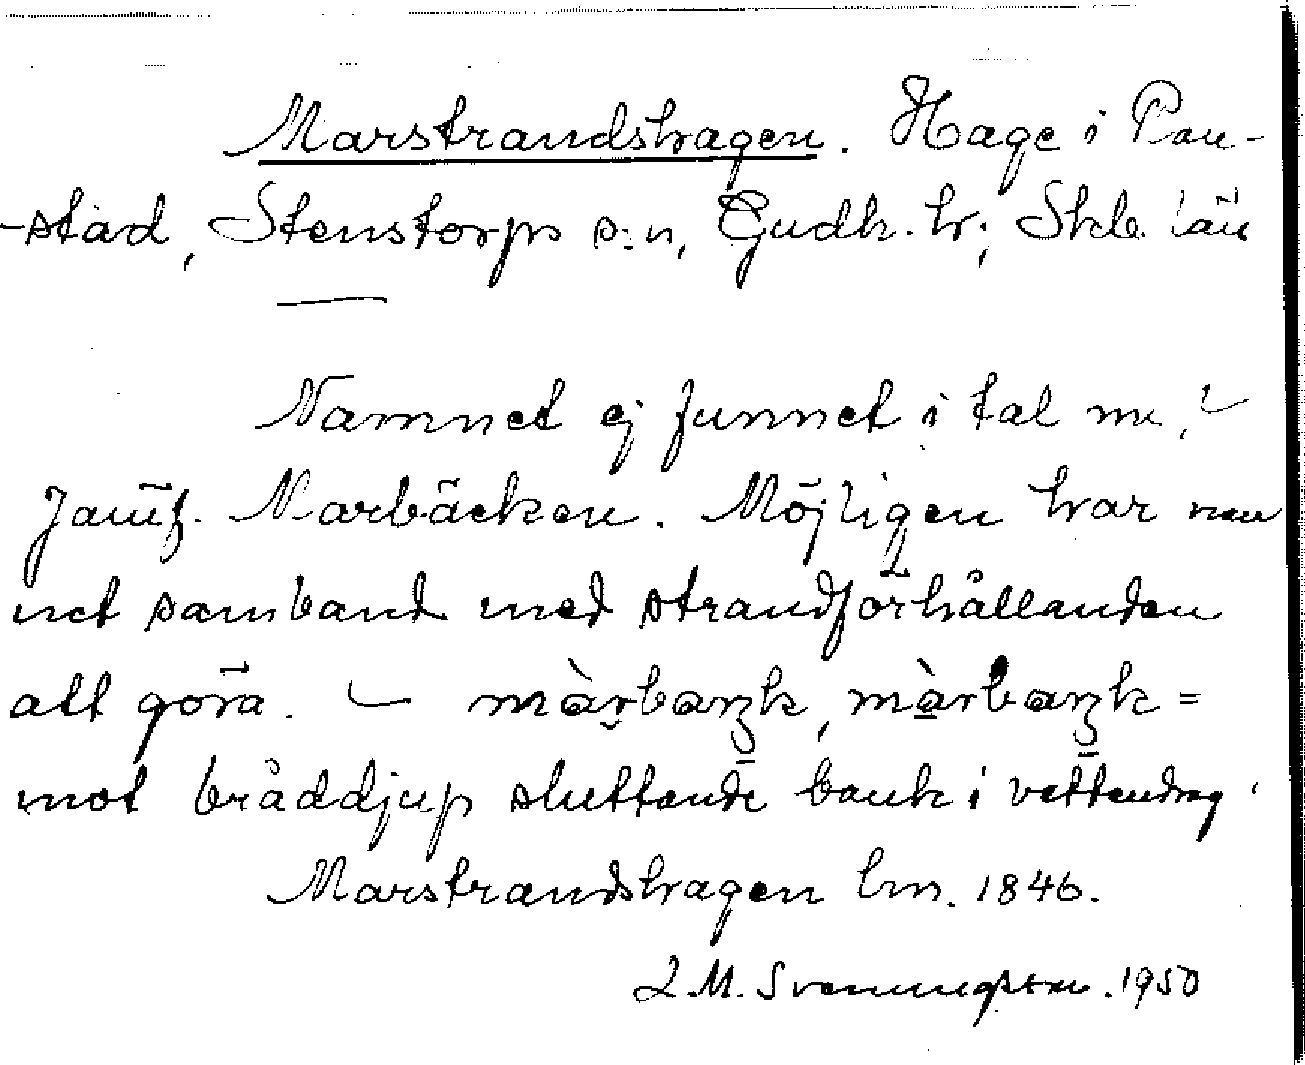 Marstrandshagen. Hage i Pau-
-stad, Stenstorps s:n, Gudh. hr; Skb. län
Namnet ej funnet i tal nu.
Jämf. Marbäcken. Möjligen har nam
net samband med strandförhållanden
att göra. – màrbaŋk, màrbaŋk =
mot bråddjup sluttande bank i vattendrag.
Marstrandshagen lm. 1846.
L.M. Svenungsson. 1950